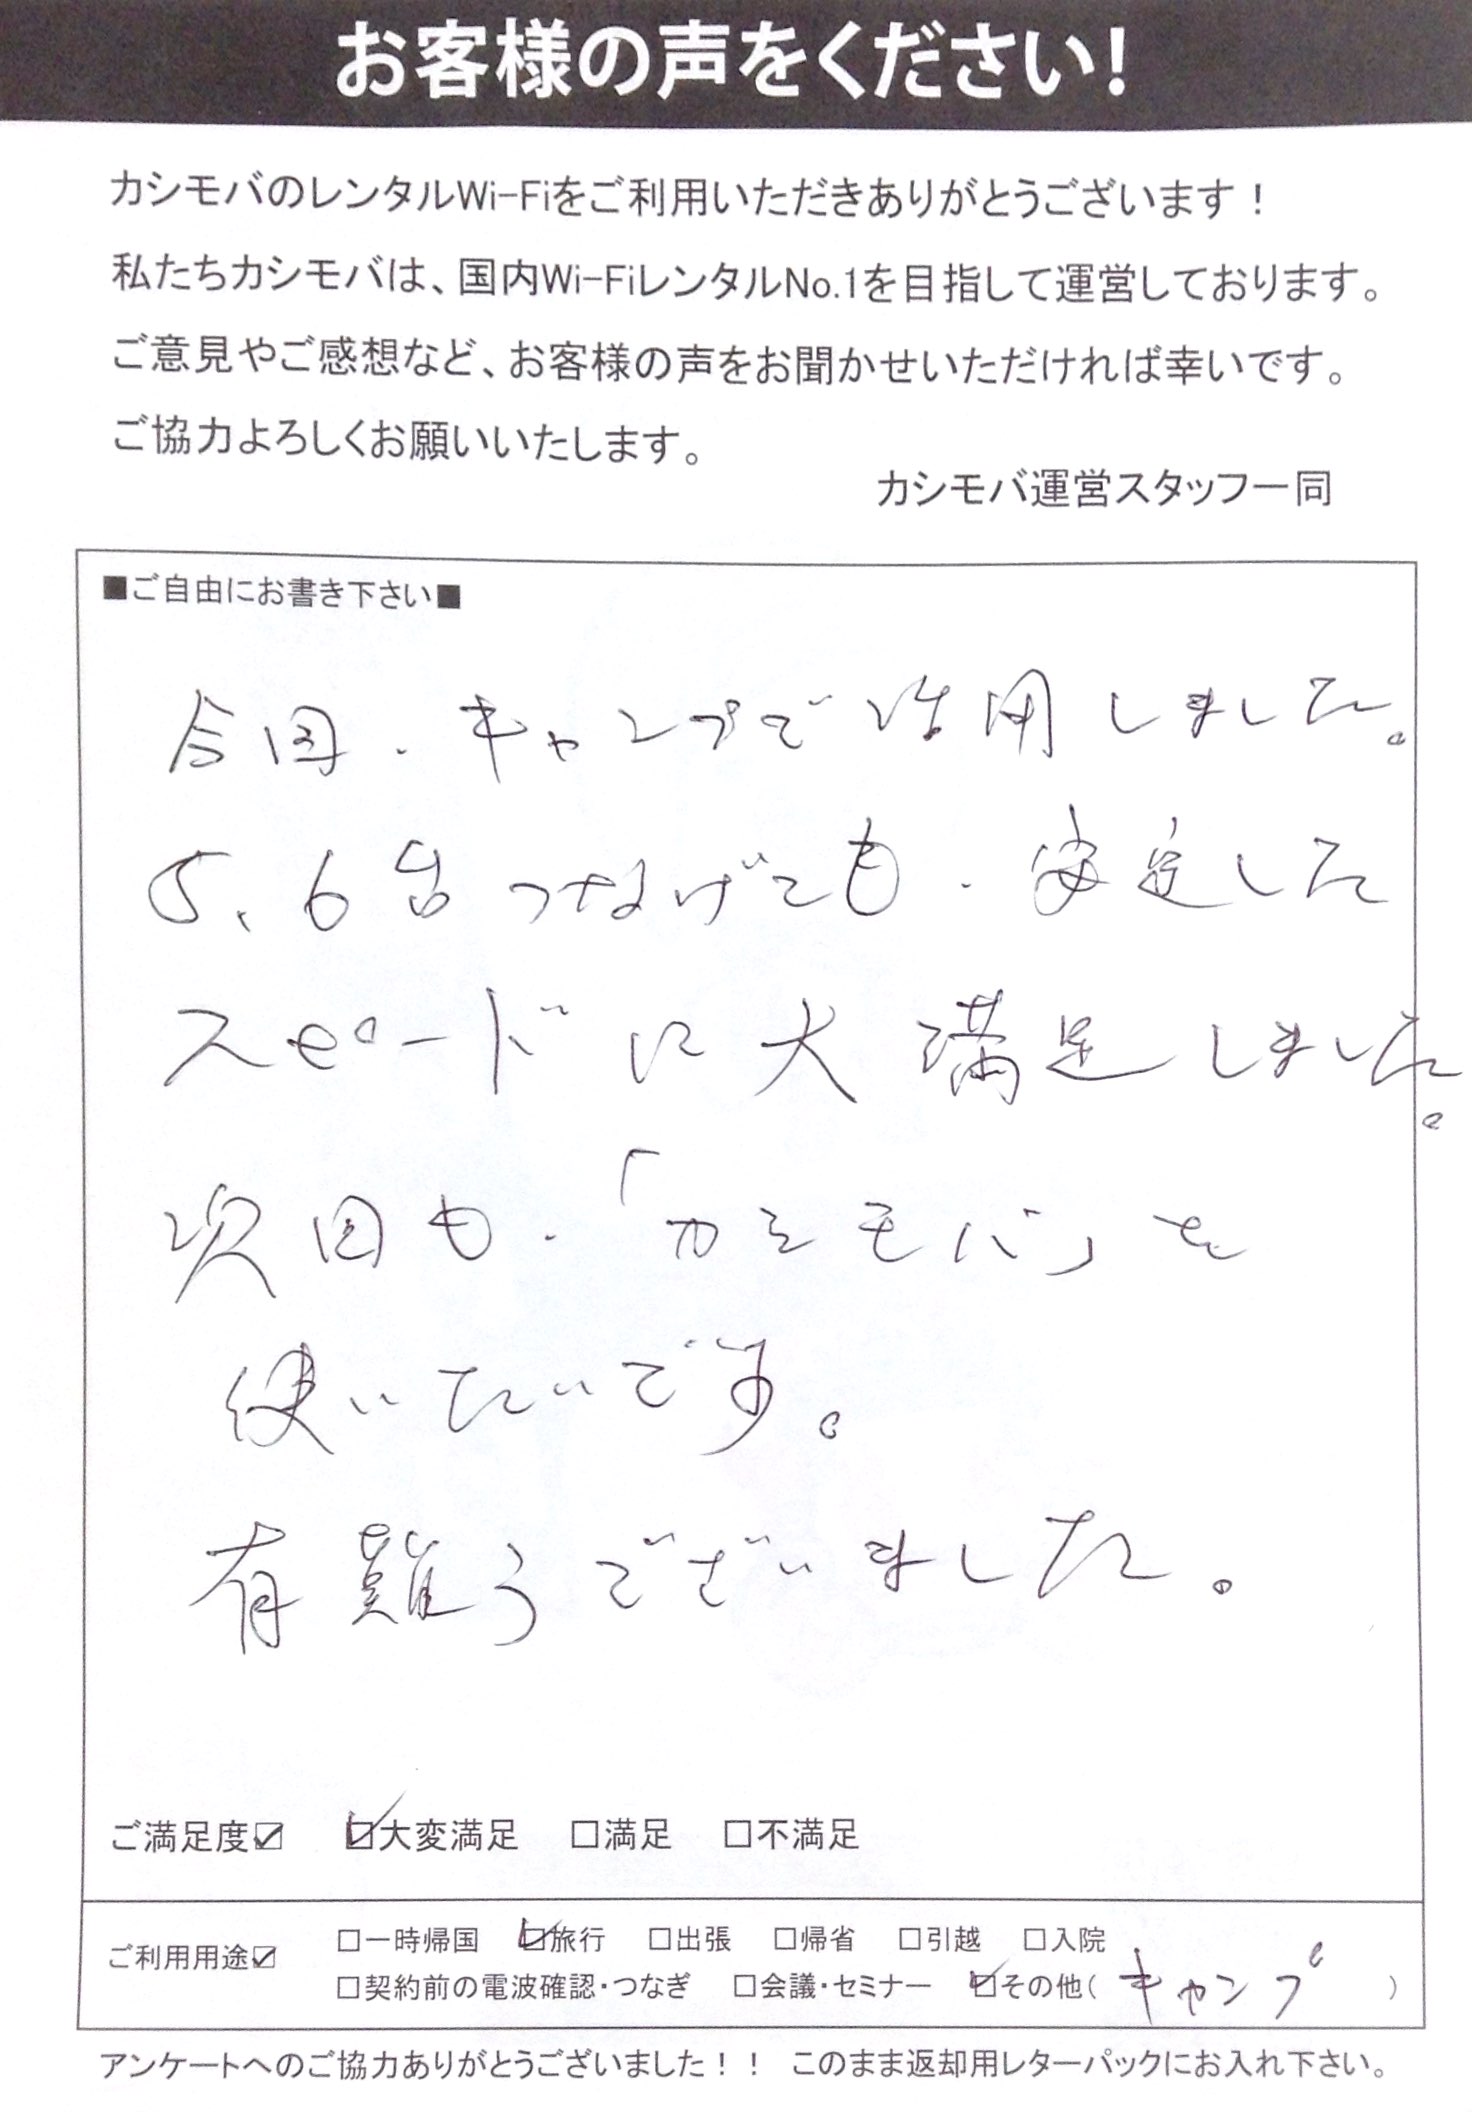 お客様の声をください!
カシモバのレンタルWi-Fiをご利用いただきありがとうございます！
私たちカシモバは、国内Wi-FiレンタルNo.1を目指して運営しております。
ご意見やご感想など、お客様の声をお聞かせいただければ幸いです。
ご協力よろしくお願いいたします。
カシモバ運営スタッフ一同
■ご自由にお書き下さい■
今回、キャンプで活用しました。
5、6台つなげても、安定した
スピードに大満足しました。
次回も、「カシモバ」を
使いたいです。
有難うございました。
ご満足度☑ ☑大変満足 □満足 □不満足
ご利用用途☑ □一時帰国 ☑旅行 □出張 □帰省 □引越 □入院
□契約前の電波確認・つなぎ □会議・セミナー ☑その他（ キャンプ ）
アンケートへのご協力ありがとうございました！！ このまま返却用レターパックにお入れ下さい。